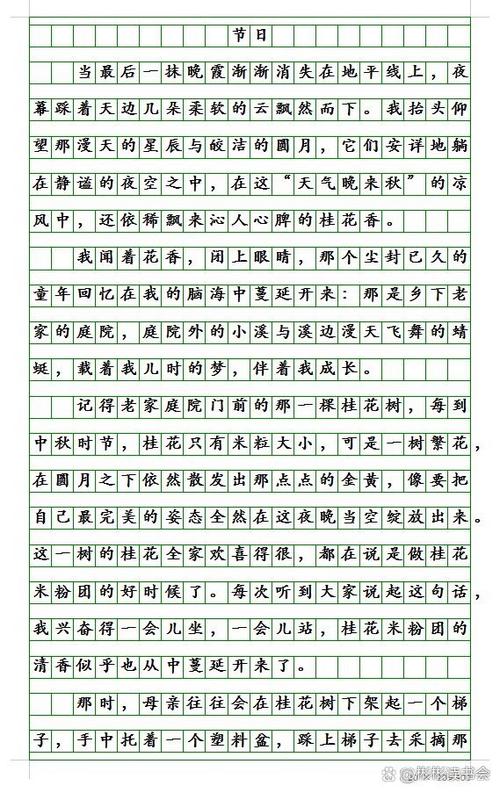 节日
当最后一抹晚霞渐渐消失在地平线上，夜
幕踩着天边几朵柔软的云飘然而下。我抬头仰
望那漫天的星辰与皎洁的圆月，它们安详地躺
在静谧的夜空之中，在这“天气晚来秋”的凉
风中，还依稀飘来沁人心脾的桂花香。
我闻着花香，闭上眼睛，那个尘封已久的
童年回忆在我的脑海中蔓延开来：那是乡下老
家的庭院，庭院外的小溪与溪边漫天飞舞的蜻
蜓，载着我儿时的梦，伴着我成长。
记得老家庭院门前的那一棵桂花树，每到
中秋时节，桂花只有米粒大小，可是一树繁花，
在圆月之下依然散发出那点点的金黄，像要把
自己最完美的姿态全然在这夜晚当空绽放出来。
这一树的桂花全家欢喜得很，都在说是做桂花
米粉团的好时候了。每次听到大家说起这句话，
我兴奋得一会儿坐，一会儿站，桂花米粉团的
清香似乎也从中蔓延开来了。
那时，母亲往往会在桂花树下架起一个梯
子，手中托着一个塑料盆，踩上梯子去采摘那